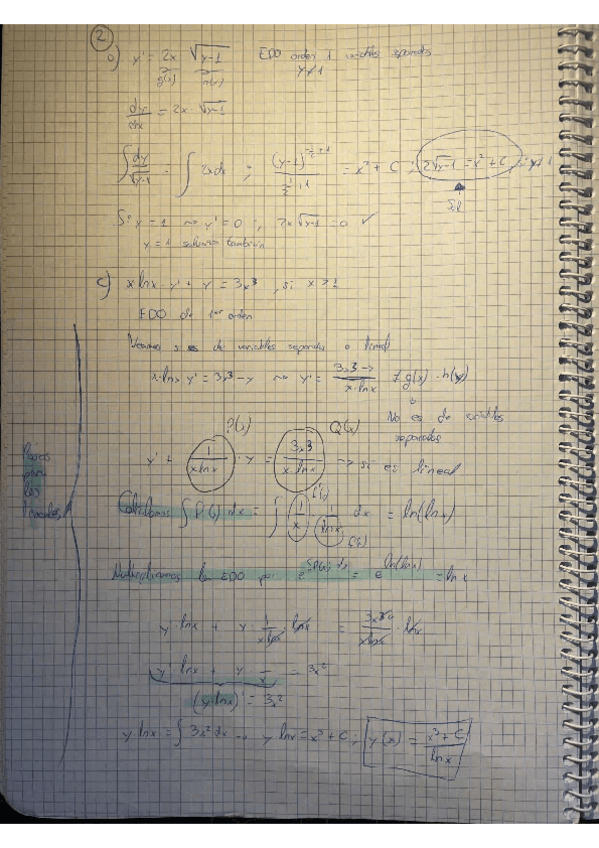 2
a) y' = 2x √(y-1) EDO orden 1 variables separadas
g(x) h(y) y≠1
dy/dx = 2x · √(y-1)
∫ dy/√(y-1) = ∫ 2x dx ; (y-1)^(-1/2+1) / (-1/2+1) = x² + C ; 2√(y-1) = x² + C ; y≠1
Sol
Si y = 1 ⇝ y' = 0 ; 2x√(y-1) = 0 ✓
y = 1 solución también
c) x lnx · y' + y = 3x³ , si x > 1
EDO de 1er orden
Veamos si es de variables separadas o lineal
x · lnx y' = 3x³ - y ⇝ y' = (3x³ - y)/(x · lnx) ≠ g(x) · h(y)
No es de variables
separadas
P(x) Q(x)
y' + 1/(x lnx) · y = 3x³/(x · lnx) ⇝ si es lineal
Pasos
para
las
lineales
Calculamos ∫ P(x) dx = ∫ 1/x · 1/lnx dx = ln(lnx)
Multiplicamos la EDO por e^(∫P(x) dx) = e^(ln(lnx)) = lnx
y' · lnx + y · 1/(x lnx) · lnx = 3x³/(x lnx) · lnx
y' lnx + y · 1/x = 3x²
(y · lnx)' = 3x²
y lnx = ∫ 3x² dx → y lnx = x³ + C ; y(x) = (x³ + C)/lnx